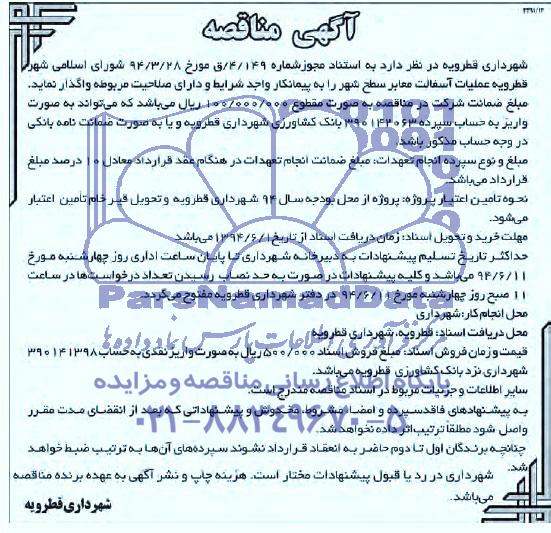 آگهی مناقصه
شهرداری قطرویه در نظر دارد به استناد مجوزشماره ۴/۱۴۹/ق مورخ ۹۴/۳/۲۸ شورای اسلامی شهر
قطرویه عملیات آسفالت معابر سطح شهر را به پیمانکار واجد شرایط و دارای صلاحیت مربوطه واگذار نماید.
مبلغ ضمانت شرکت در مناقصه به صورت مقطوع ۱۰۰/۰۰۰/۰۰۰ ریال می‌باشد که می‌تواند به صورت
واریز به حساب سپرده ۳۹۰۱۴۲۰۶۳ بانک کشاورزی شهرداری قطرویه و یا به صورت ضمانت نامه بانکی
در وجه حساب مذکور باشد.
مبلغ و نوع سپرده انجام تعهدات: مبلغ ضمانت انجام تعهدات در هنگام عقد قرارداد معادل ۱۰ درصد مبلغ
قرارداد می‌باشد.
نحوه تامین اعتبار پروژه: پروژه از محل بودجه سال ۹۴ شهرداری قطرویه و تحویل قیر خام تأمین اعتبار
می‌شود.
مهلت خرید و تحویل اسناد: زمان دریافت اسناد از تاریخ ۱۳۹۴/۶/۱ می‌باشد
حداکثر تاریخ تسلیم پیشنهادات به دبیرخانه شهرداری تا پایان ساعت اداری روز چهارشنبه مورخ
۹۴/۶/۱۱ می‌باشد و کلیه پیشنهادات در صورت به حد نصاب رسیدن تعداد درخواست‌ها در ساعت
۱۱ صبح روز چهارشنبه مورخ ۹۴/۶/۱۱ در دفتر شهرداری قطرویه مفتوح می‌گردد.
محل انجام کار: شهرداری
محل دریافت اسناد: قطرویه، شهرداری قطرویه
قیمت و زمان فروش اسناد: مبلغ فروش اسناد ۵۰۰/۰۰۰ ریال به صورت واریز نقدی به حساب ۳۹۰۱۴۱۳۹۸
شهرداری نزد بانک کشاورزی قطرویه می‌باشد.
سایر اطلاعات و جزئیات مربوط در اسناد مناقصه مندرج است.
به پیشنهادهای فاقد سپرده و امضا، مشروط، مخدوش و پیشنهاداتی که بعد از انقضای مدت مقرر
واصل شود مطلقا ترتیب اثر داده نخواهد شد.
چنانچه برندگان اول تا دوم حاضر به انعقاد قرارداد نشوند سپرده‌های آن‌ها به ترتیب ضبط خواهد
شد.
شهرداری در رد یا قبول پیشنهادات مختار است. هزینه چاپ و نشر آگهی به عهده برنده مناقصه
می‌باشد.
شهرداری قطرویه
ParsNamadData
مرکز فرآوری اطلاعات پارس نماد داده‌ها
پایگاه اطلاع رسانی مناقصه و مزایده
۰۲۱-۸۸۳۴۹۶۷۰-۵